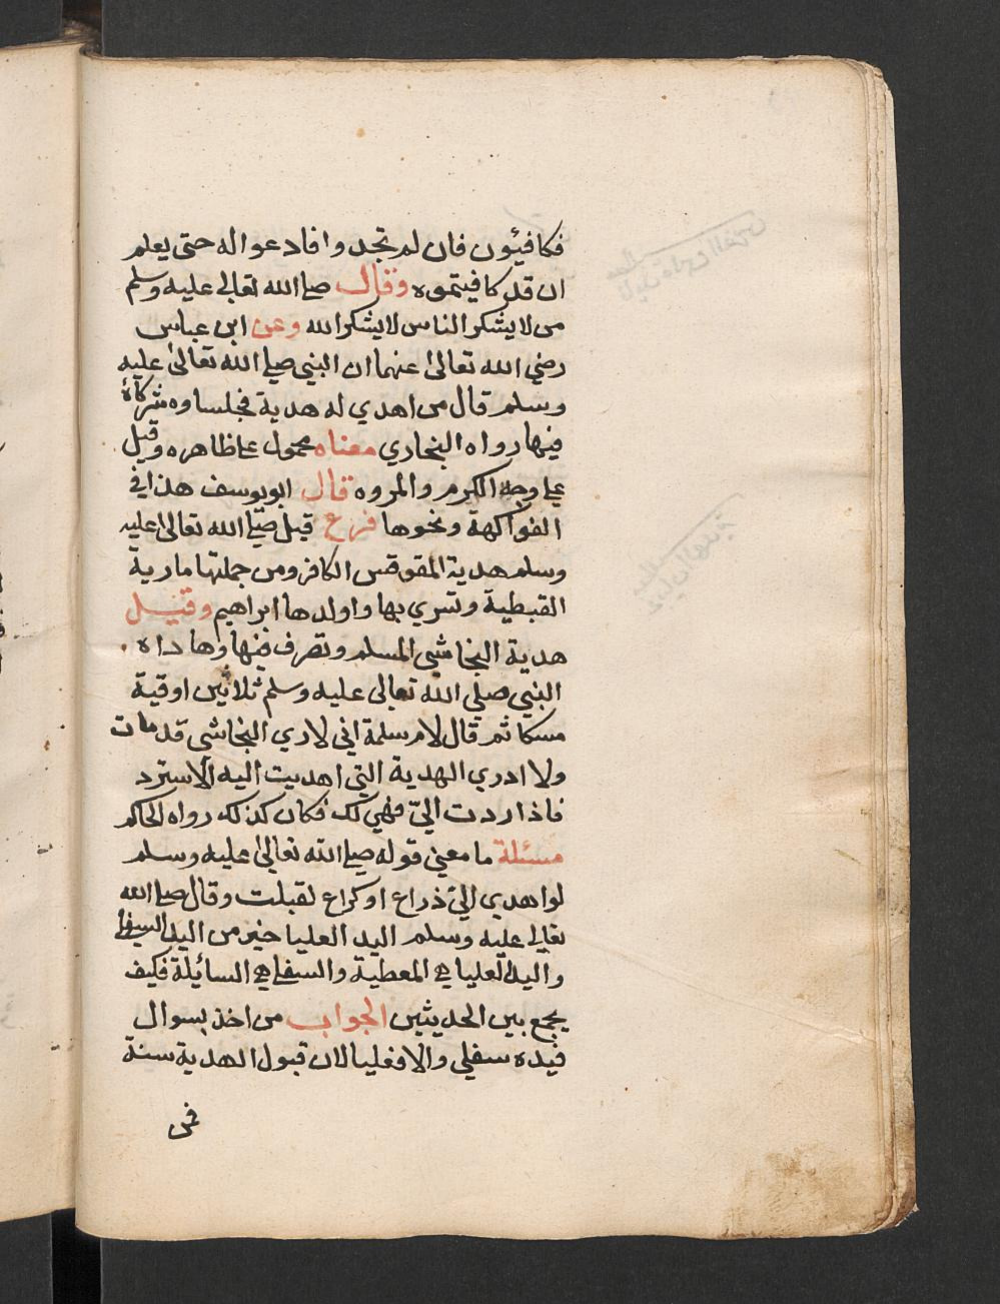 فكافيئون فان لم تجد وافادعواله حتى يعلم
ان قد كافيتموه وقال صلى الله تعالى عليه وسلم
من لا يشكر الناس لا يشكر الله وعن ابن عباس
رضي الله تعالى عنهما ان النبي صلى الله تعالى عليه
وسلم قال من اهدي له هدية فجلساوه شركاؤه
فيها رواه البخاري معناه محمول على ظاهره وقيل
على وجه الكرم والمروه قال ابويوسف هذا في
الفواكهة ونحوها فرع قبل صلى الله تعالى عليه
وسلم هدية المقوقس الكافر ومن جملتها مارية
القبطية وتسري بها واولدها ابراهيم وقبل
هدية النجاشي المسلم وتصرف فيها وهاداه
النبي صلى الله تعالى عليه وسلم ثلاثين اوقية
مسكا ثم قال لام سلمة اني لاري النجاشي قد مات
ولا ادري الهدية التي اهديت اليه الا سترد
فاذا ردت الي فهي لك فكان كذلك رواه الحاكم
مسئلة ما معنى قوله صلى الله تعالى عليه وسلم
لو اهدي الي ذراع او كراع لقبلت وقال صلى الله
تعالى عليه وسلم اليد العليا خير من اليد السفلى
واليد العليا هي المعطية والسفلى هي السائلة فكيف
يجمع بين الحديثين الجواب من اخذ بسوال
فيده سفلي والا فعليا لان قبول الهدية سنة
فمن